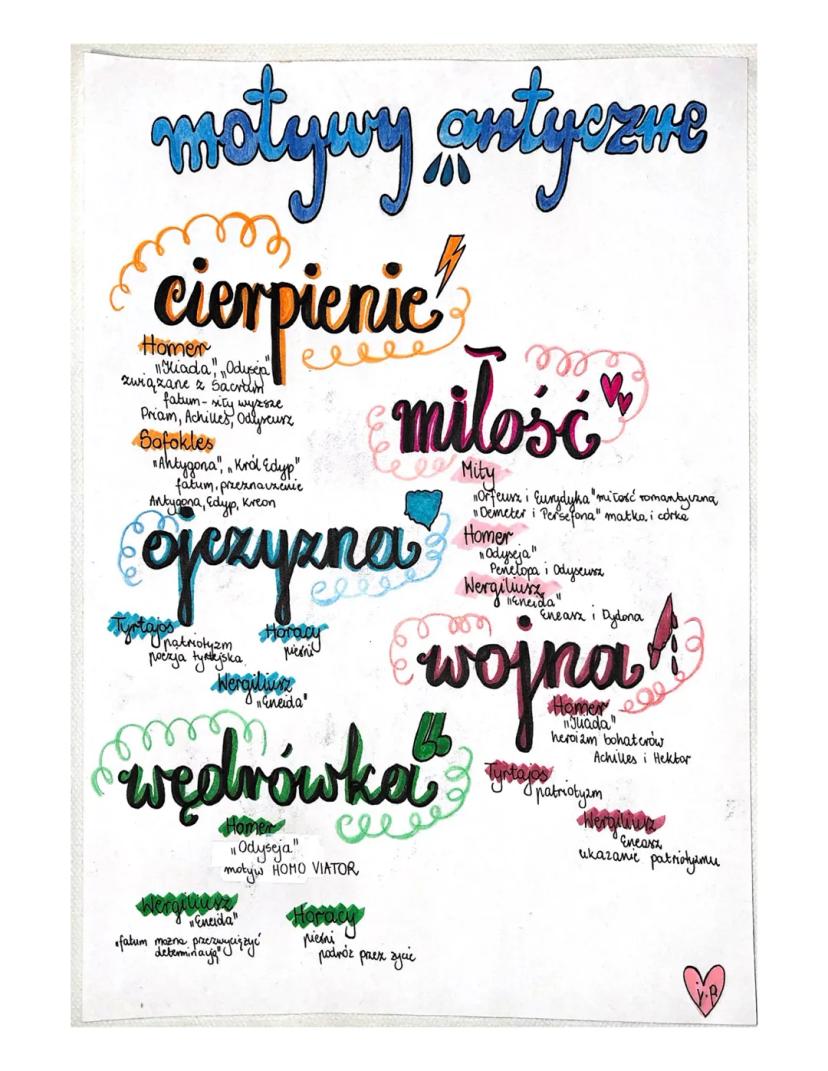 motywy antyczne
cierpienie
Homer
"Iliada", "Odyseja"
związane z Sacrum
fatum - siły wyższe
Priam, Achilles, Odyseusz
Sofokles
"Antygona", "Król Edyp"
fatum, przeznaczenie
Antygona, Edyp, Kreon
miłość
Mity
"Orfeusz i Eurydyka" miłość romantyczna
"Demeter i Persefona" matka i córka
Homer
"Odyseja"
Penelopa i Odyseusz
Wergiliusz
"Eneida"
Eneasz i Dydona
ojczyzna
Tyrtajos
patriotyzm
poezja tyrtejska
Horacy
pieśni
Wergiliusz
"Eneida"
wojna
Homer
"Iliada"
heroizm bohaterów
Achilles i Hektor
Tyrtajos
patriotyzm
Wergiliusz
Eneasz
ukazanie patriotyzmu
wędrówka
Homer
"Odyseja"
motyw HOMO VIATOR
Wergiliusz
"Eneida"
"fatum można przezwyciężyć
determinacją"
Horacy
pieśni
podróż przez życie
j.R